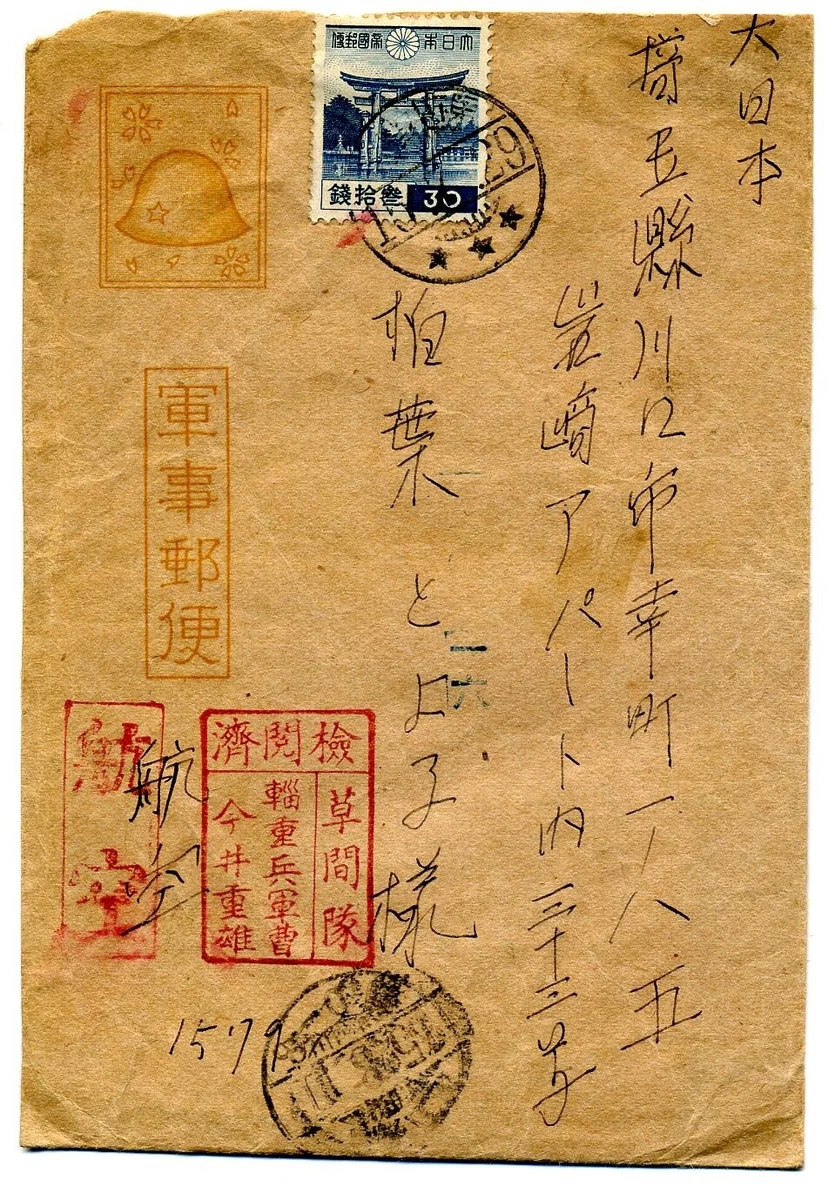 大日本
埼玉縣川口市幸町一ノ八五
岩崎アパート内三十三号
柏葉とよ子様
大日本帝國郵便
参拾錢 30
29
二六
軍事郵便
檢閲濟
草間隊
輜重兵軍曹
今井重雄
航空
航空
1579